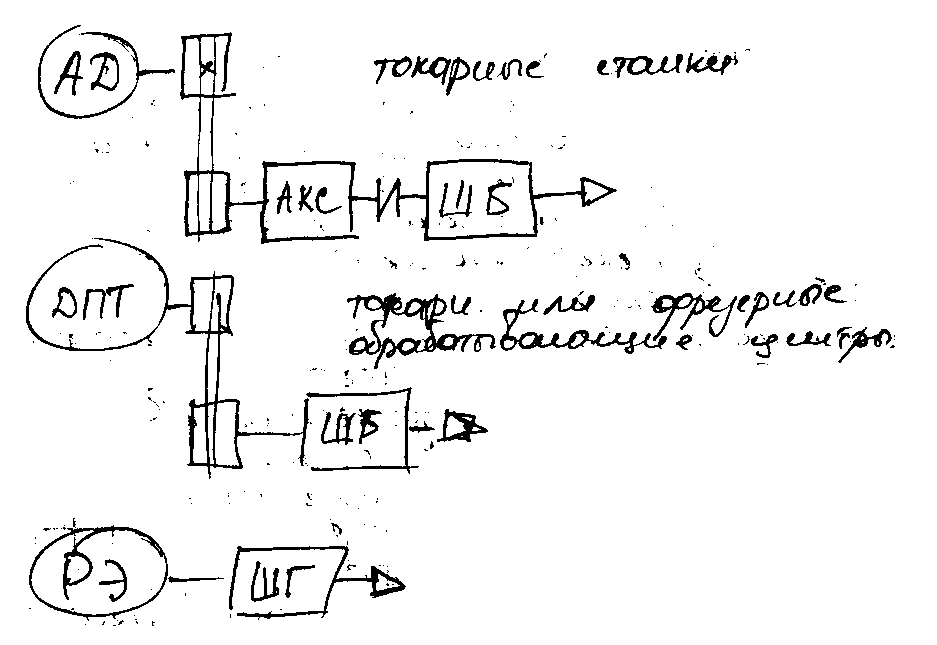 АД
токарные станки
АКС
ШБ
ДПТ
токари или фрезерные
обрабатывающие центры.
ШБ
РЭ
ШГ